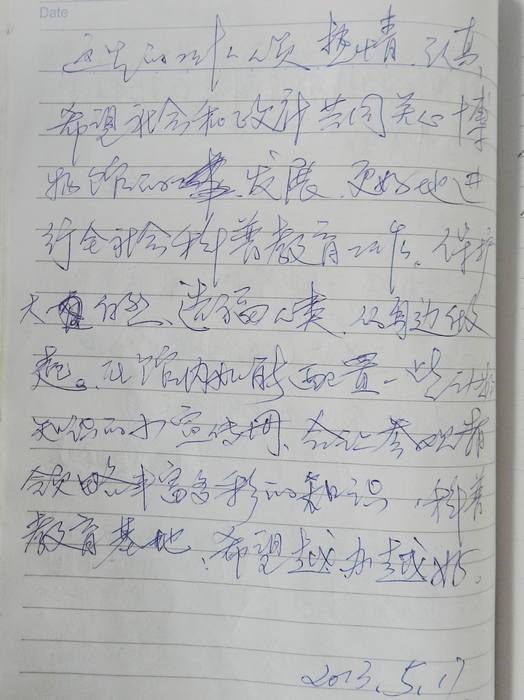 Date
这里的工作人员热情、认真,
希望社会和政府共同关心博
物馆的发展,更好地进
行全社会科普教育工作。保护
大自然、造福人类,从身边做
起。在馆内如能配置一些
知识的小宣传册、会让参观者
领略丰富多彩的知识,科普
教育基地,希望越办越好。
2013.5.17